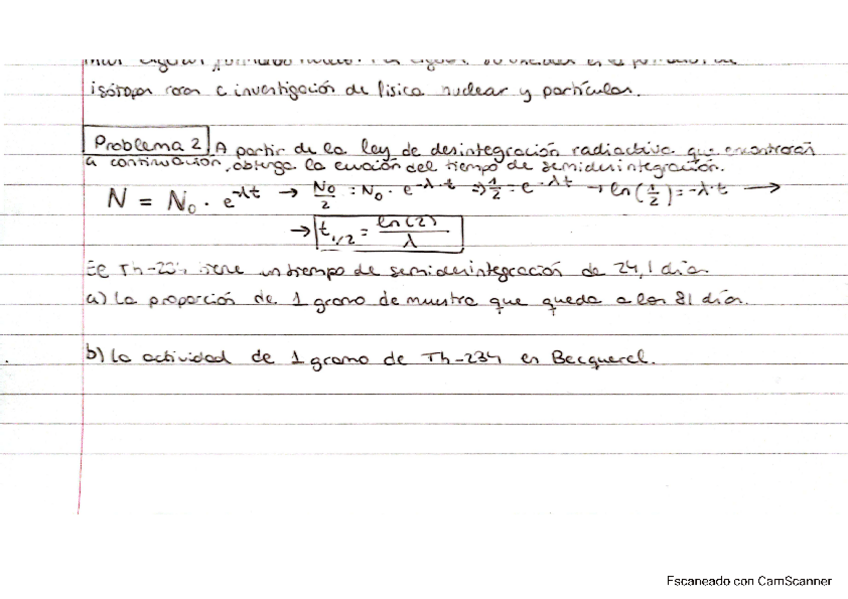 isótopos raros e investigación de física nuclear y partículas.
Problema 2 A partir de la ley de desintegración radiactiva que encontrarás
a continuación, obtenga la ecuación del tiempo de semidesintegración.
N = N₀ · e^-λt → N₀/2 = N₀ · e^-λ·t ⇒ 1/2 = e^-λt → ln(1/2) = -λ·t →
→ t₁/₂ = ln(2)/λ
El Th-234 tiene un tiempo de semidesintegración de 24,1 días.
a) La proporción de 1 gramo de muestra que queda a los 81 días.
b) La actividad de 1 gramo de Th-234 en Becquerel.
Escaneado con CamScanner